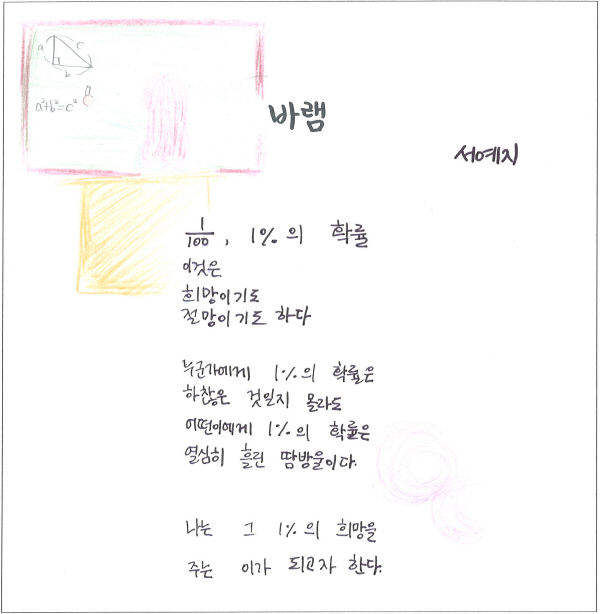 a
c
b
a²+b²=c²
바램
서예지
1/100, 1%의 확률
이것은
희망이기도
절망이기도 하다
누군가에게 1%의 확률은
하찮은 것일지 몰라도
어떤이에게 1%의 확률은
열심히 흘린 땀방울이다.
나는 그 1%의 희망을
주는 이가 되고자 한다.